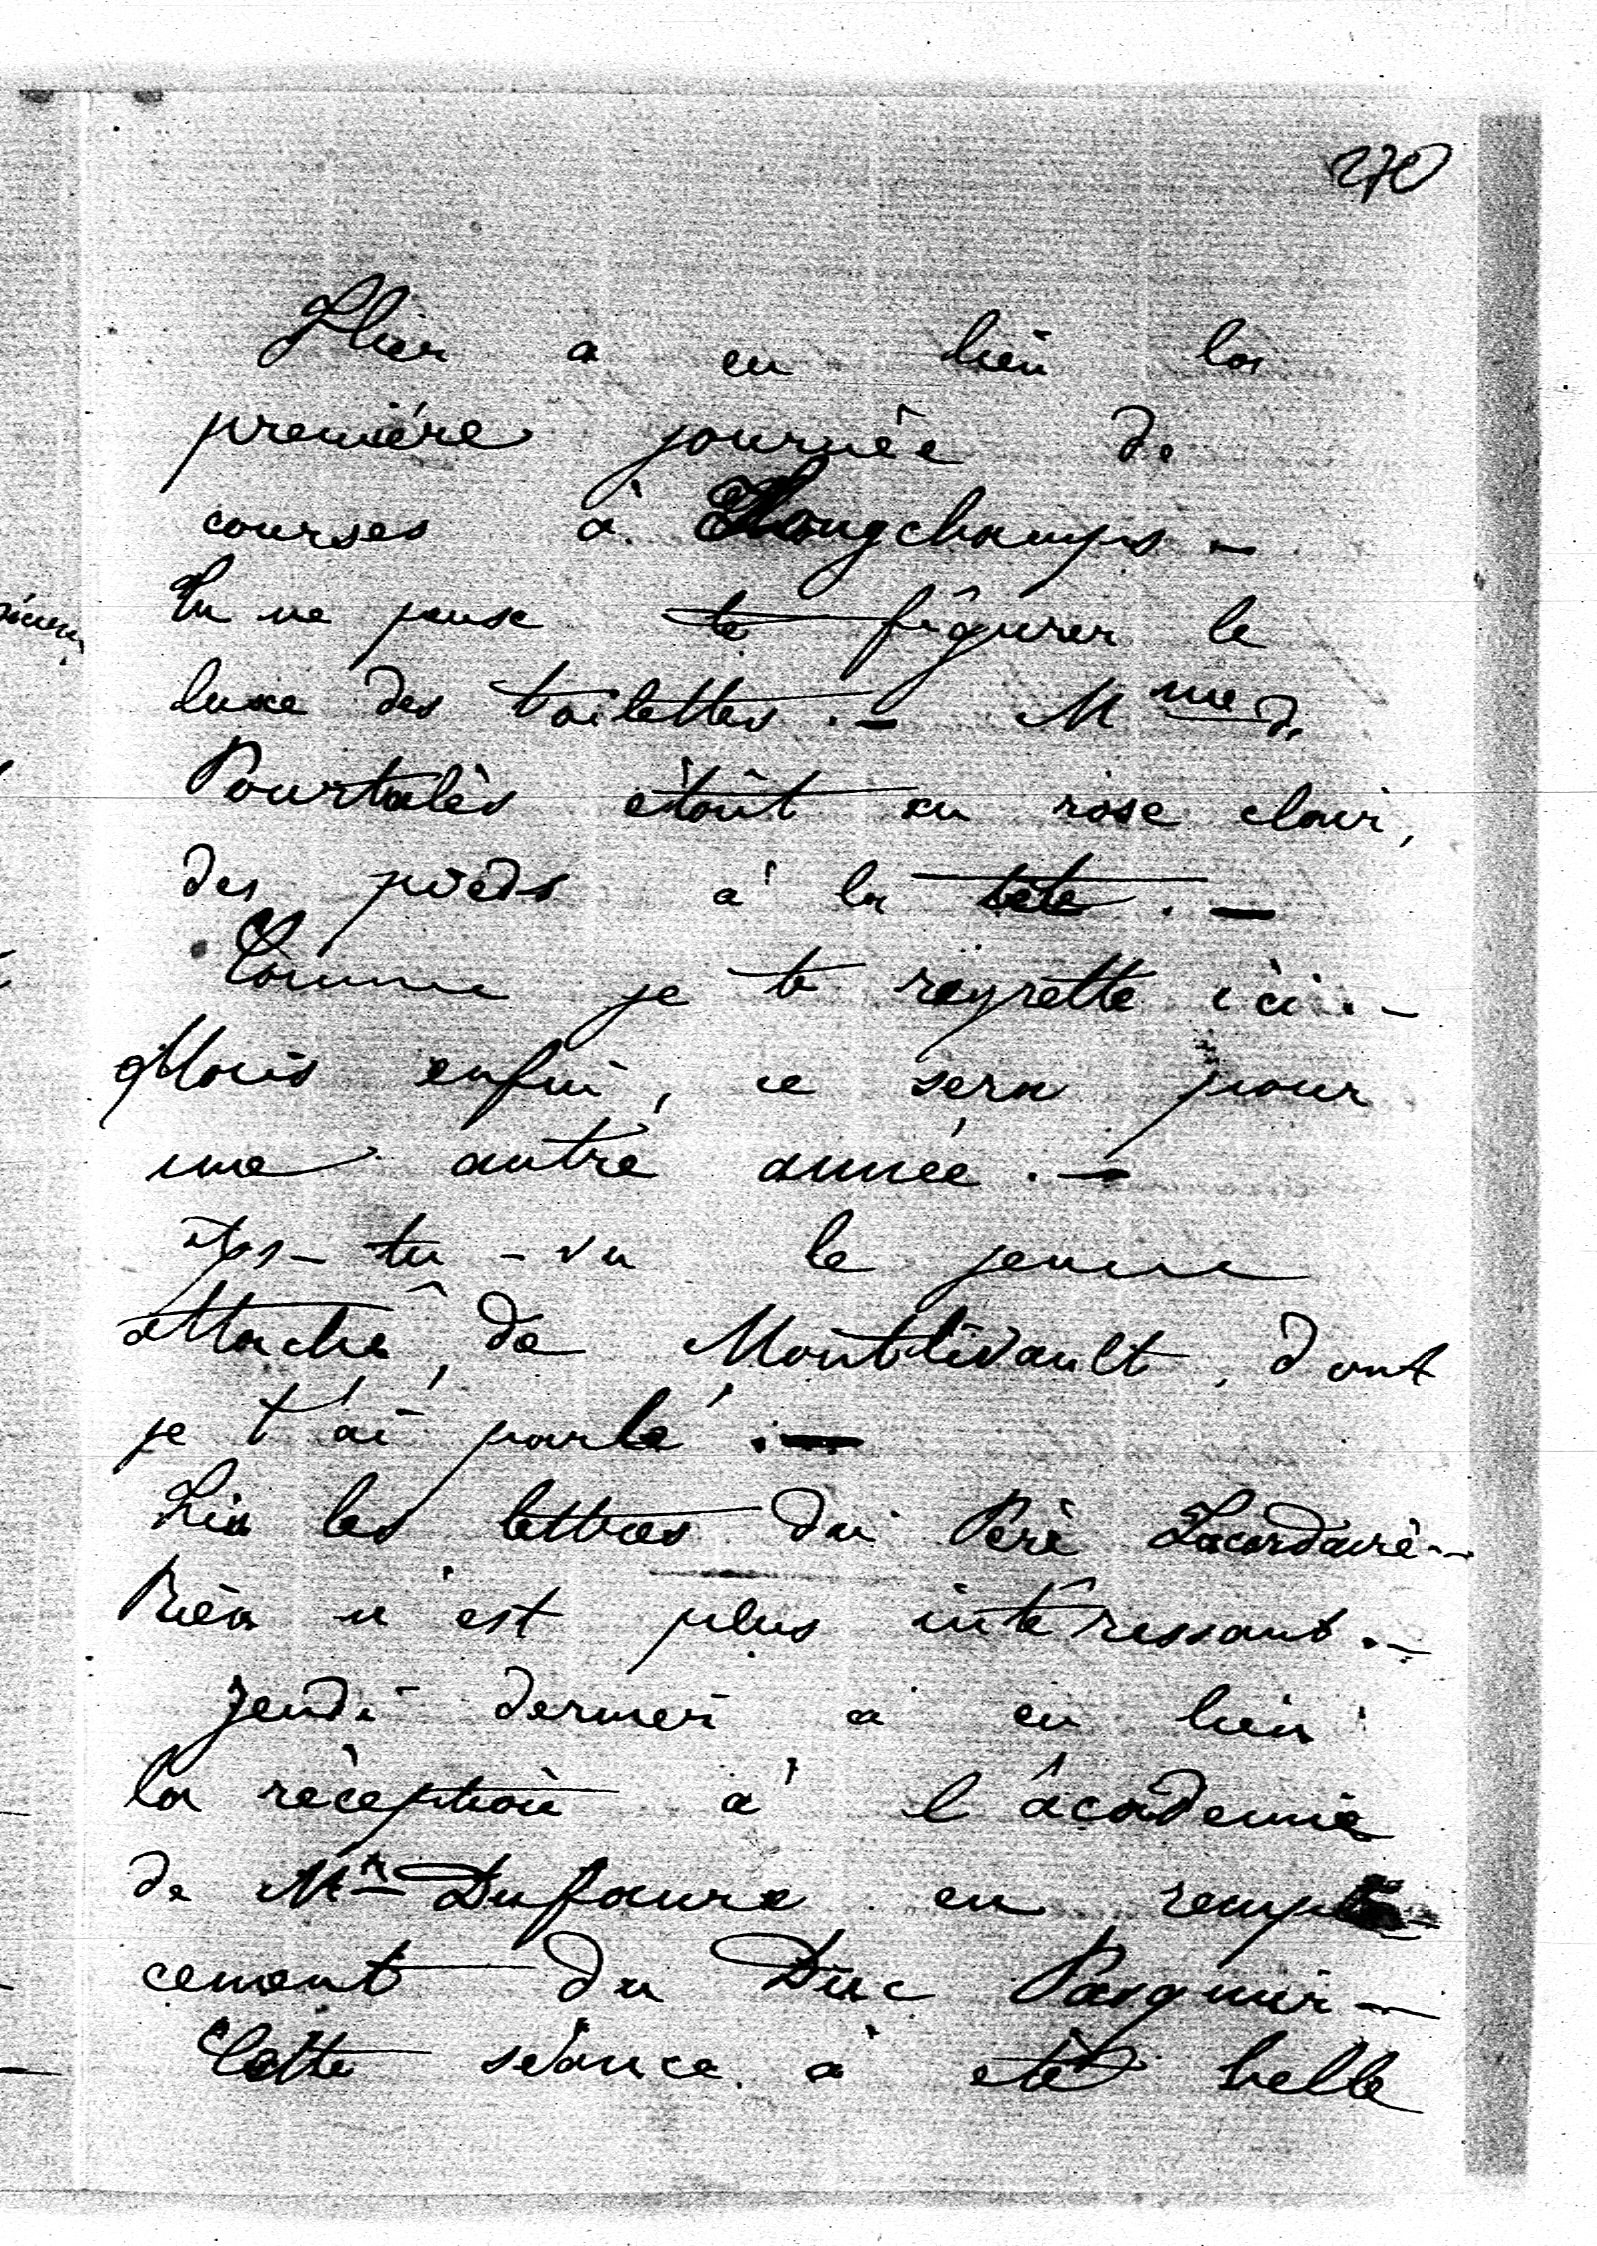 270
Hier a eu lieu la
première journée de
courses à Longchamps –
Tu ne peux te figurer le
luxe des toilettes. – Mme de
Pourtalès était en rose clair,
des pieds à la tête. –
Comme je te regrette ici. –
Mais enfin, ce sera pour
une autre année. –
As-tu-vu le jeune
attaché, de Montlivault, dont
je t'ai parlé. –
Lis les lettres du Père Lacordaire. –
Rien n'est plus intéressant. –
Jeudi dernier a eu lieu
la réception à l'académie
de Mr Dufaure en rempla-
cement du Duc Pasquier –
Cette séance a été belle